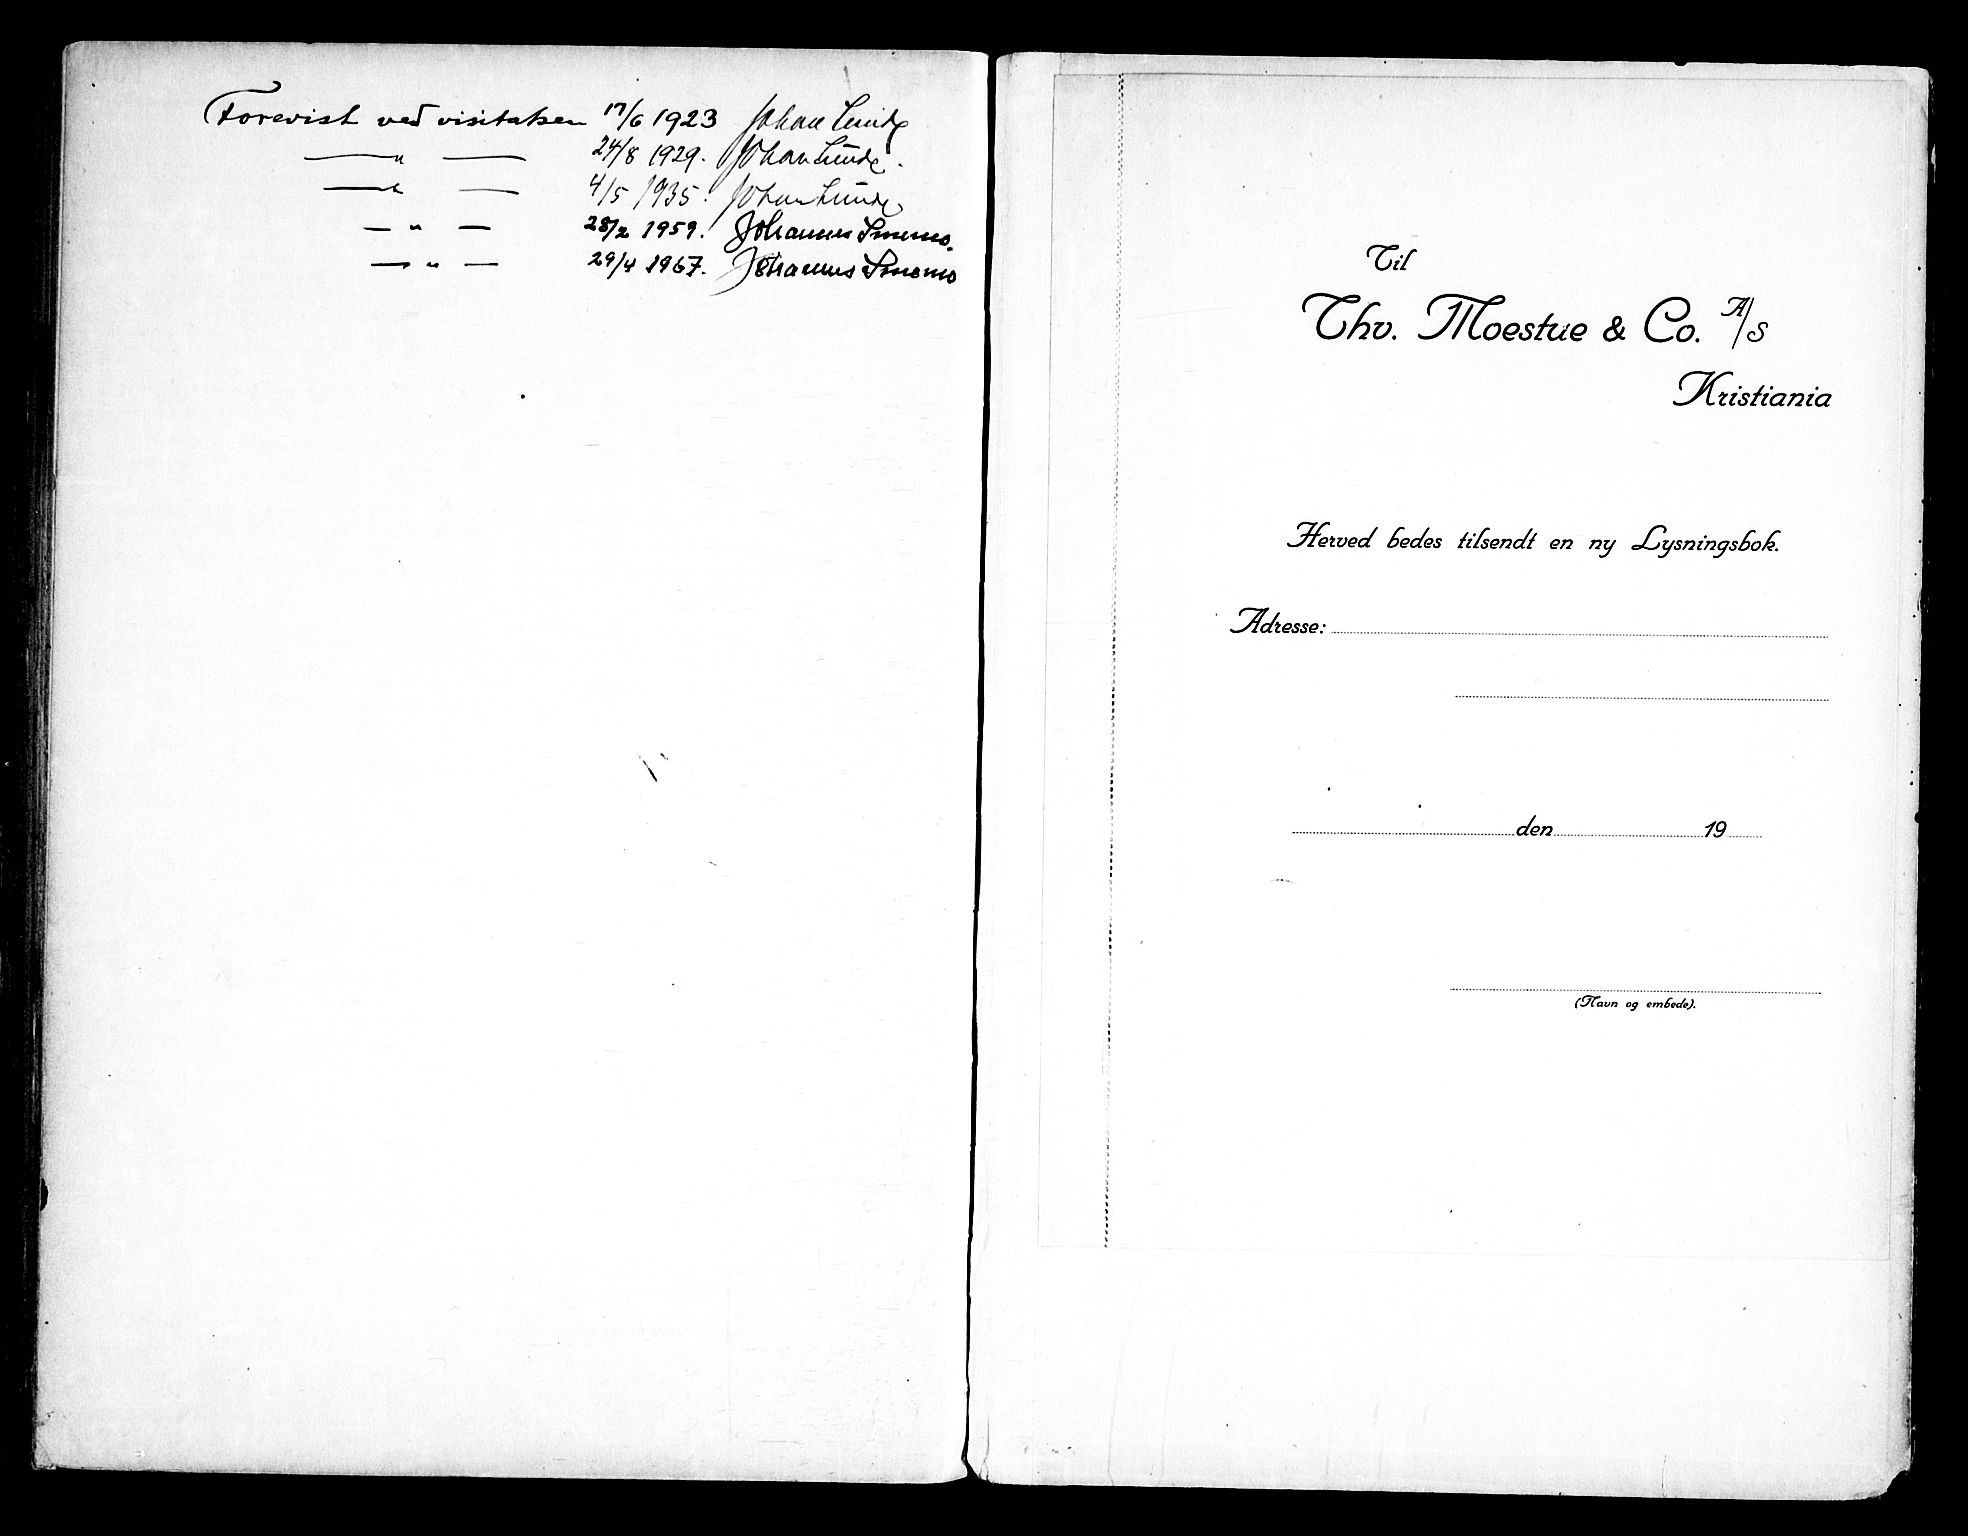 Forevist ved visitatsen 17/6 1923 Johan Lunde
— " — 24/8 1929. Johan Lunde.
— " — 4/5 1935. Johan Lunde
— " — 28/2 1959. Johannes Smemo.
— " — 29/4 1967. Johannes Smemo
Til
Thv. Moestue & Co. A/S
Kristiania
Herved bedes tilsendt en ny Lysningsbok.
Adresse:
den 19
(Navn og embede).